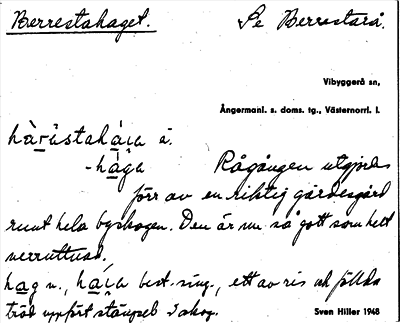 Berrestahaget. Se Berrestarå.
Vibyggerå sn,
Ångermanl. s. doms. tg., Västernorrl. l.
hàrästahája ä.
-hága Rågången utgjordes
förr av en riktig gärdesgård
runt hela byskogen. Den är nu så gott som helt
nerruttnad.
hag n., hája best. sing., ett av ris och fällda
träd uppfört stängsel i skog.
Sven Hiller 1948